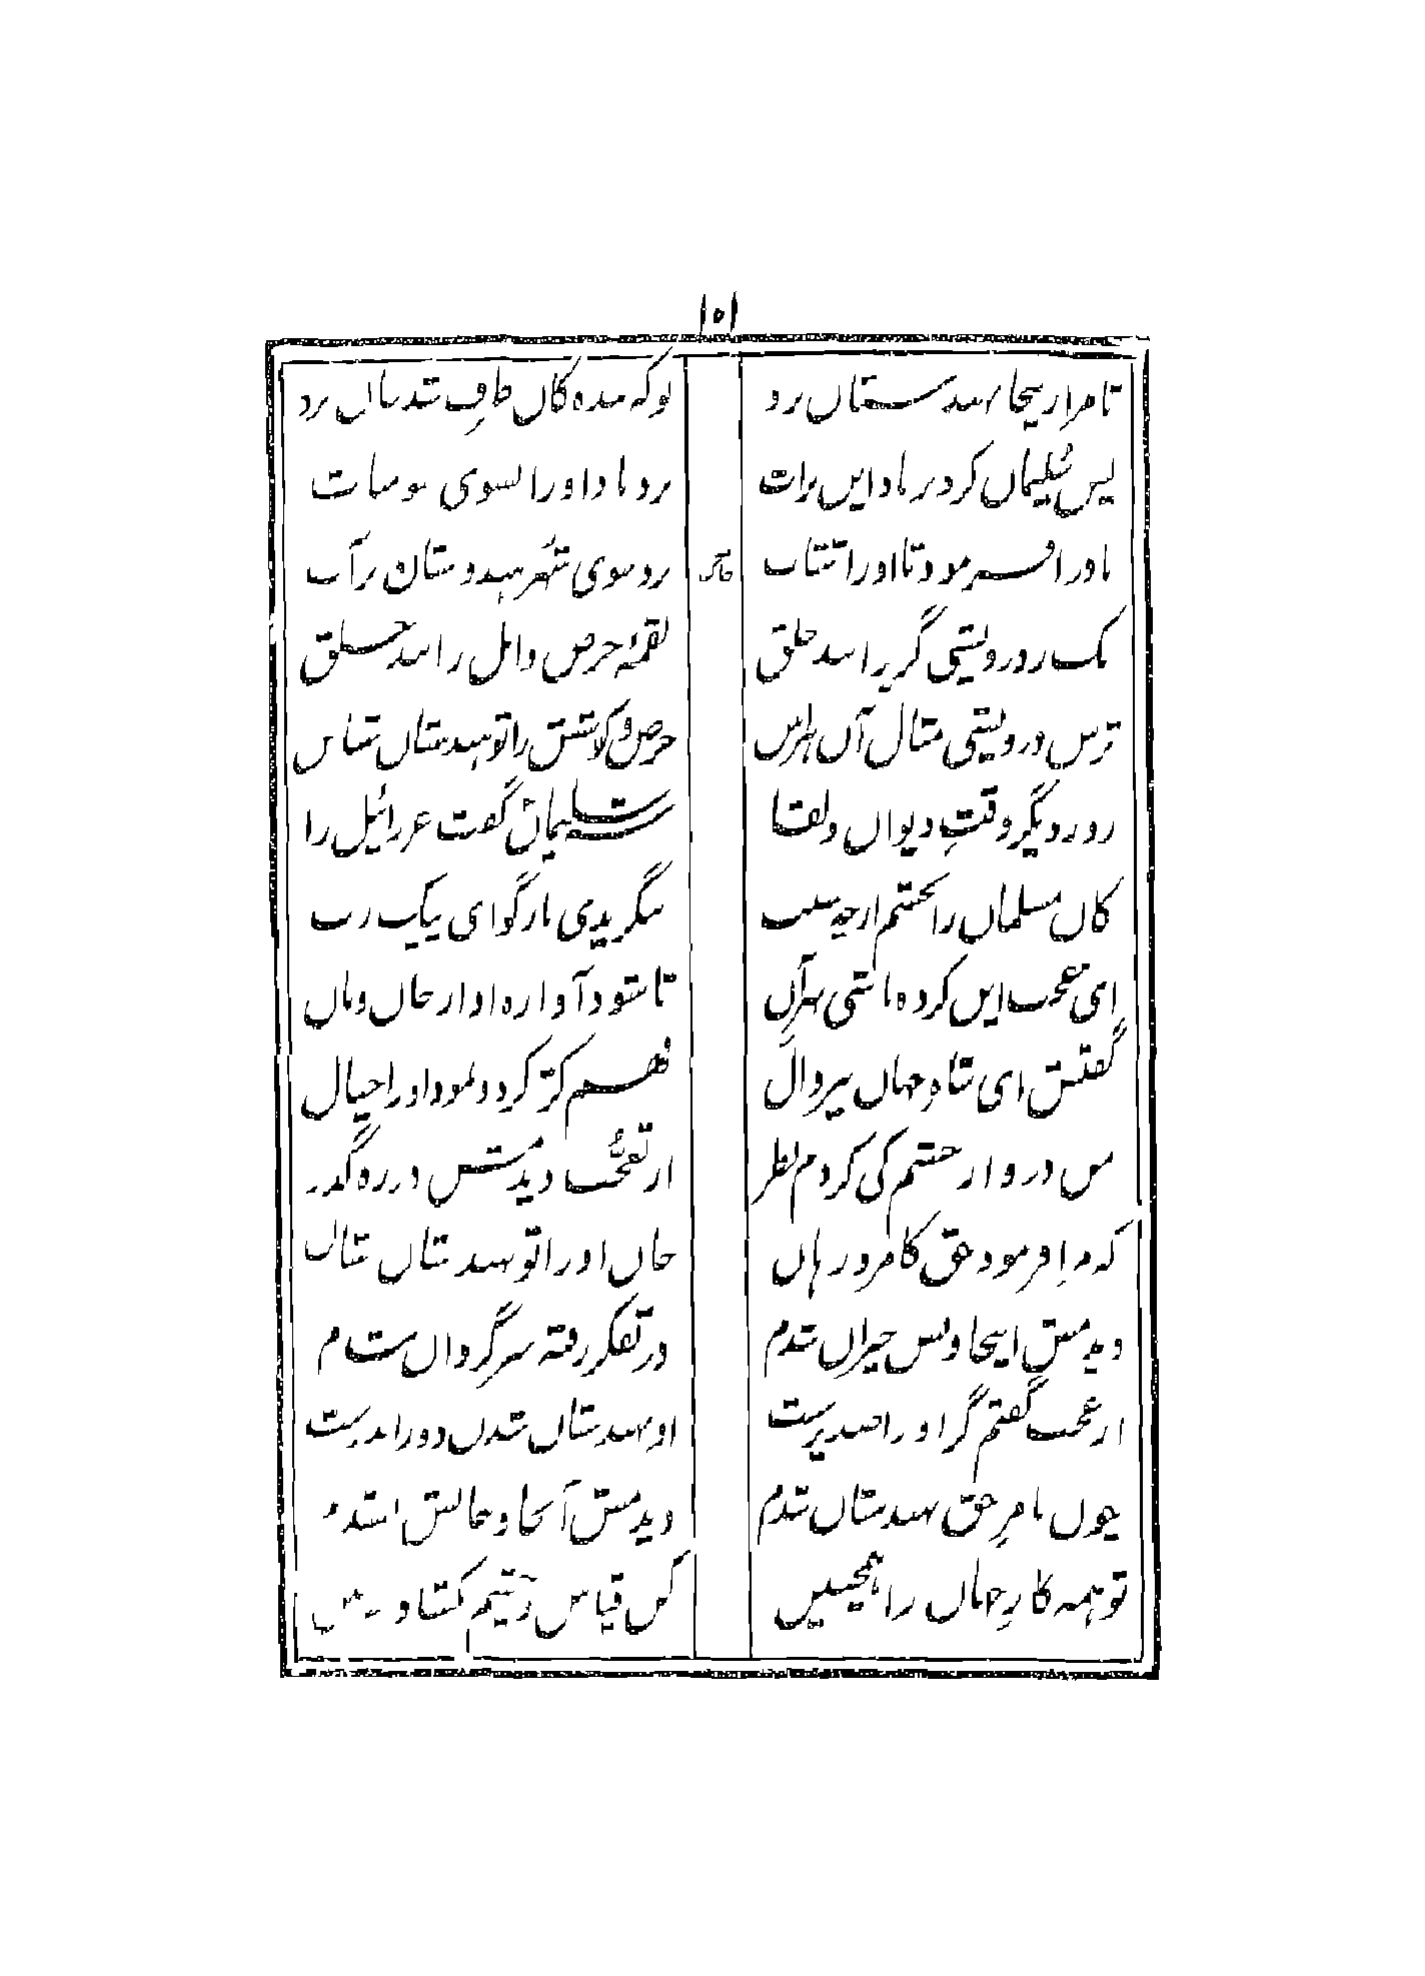 ۱۰۱
تا مرا زینجا بهندستان برد بوکه بنده کان طرف شد جان برد
پس سُلیمان کرد بر باد این برات برد باد او را بسوی سومنات
باد را فرمود تا او را شتاب برد سوی شهر هندوستان بر آب
نک ز درویشی گریزانند خلق لقمهٔ حرص و امل زانند خلق
ترس درویشی مثال آن هراس حرص و کوشش را تو هندستان شناس
روز دیگر وقتِ دیوان و لقا شه سلیمان گفت عزرائیل را
کان مسلمان را بخشم از چه سبب بنگریدی بازگو ای پیک رب
ای عجب این کرده باشی بهر آن تا شود آواره او از خان و مان
گفتش ای شاهِ جهان بیزوال فهم کژ کرد و نمود او را خیال
من درو از خشم کی کردم نظر از تعجّب دیدمش در ره گذر
که مرا فرمود حق کامروز هان جان او را تو بهندستان ستان
دیدمش اینجا و بس حیران شدم در تفکر رفته سرگردان شدم
از عجب گفتم گر او را صد پرست او بهندستان شدن دور اندرست
چون بامرِ حق بهندستان شدم دیدمش آنجا و جانش بستدم
تو همه کارِ جهان را همچنین کن قیاس و چشم بکشا و ببین